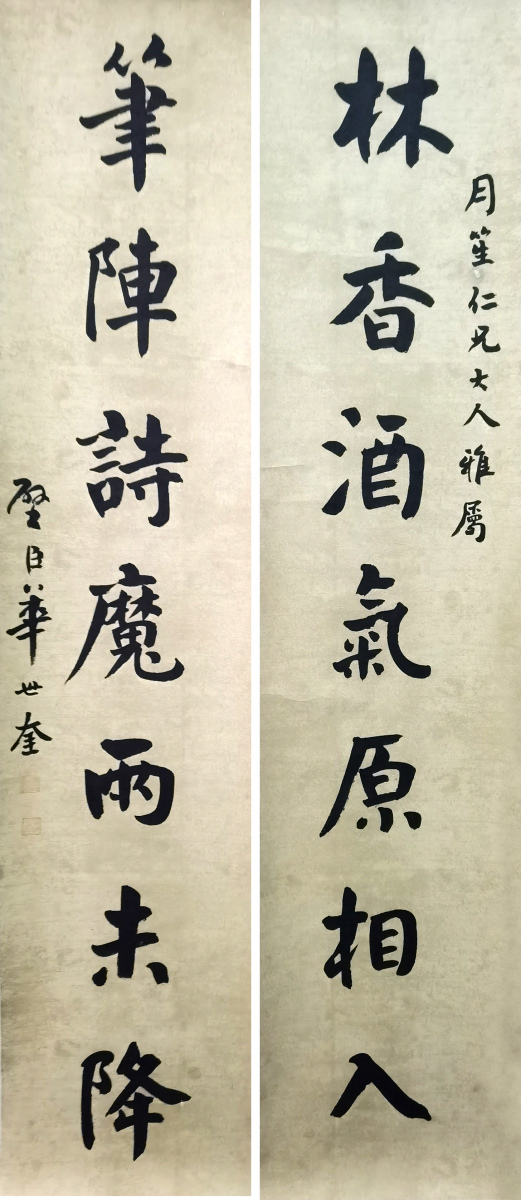 月笙仁兄大人雅属
林香酒氣原相入
筆陣詩魔兩未降
壁臣華世奎